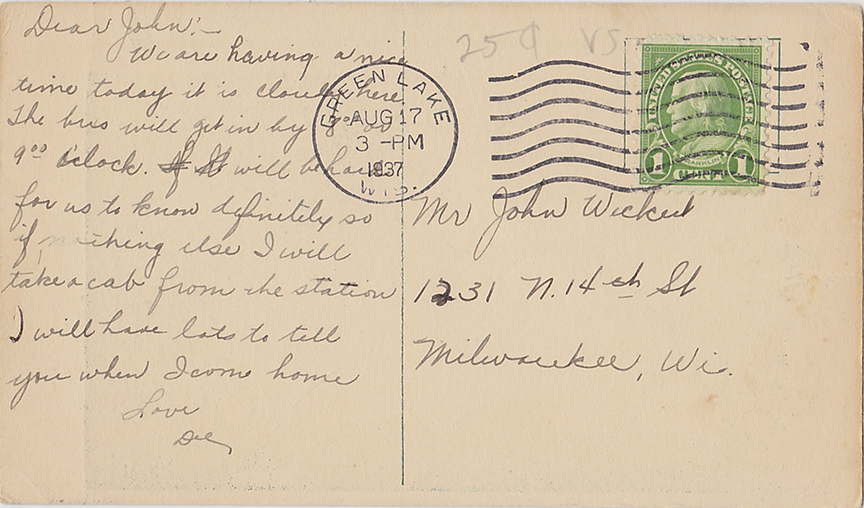 Dear John:-
We are having a nice
time today it is cloudy here.
The bus will get in by 8⁰⁰ or
9⁰⁰ o'clock. It will be hard
for us to know definitely so
if nothing else I will
take a cab from the station
I will have lots to tell
you when I come home
Love
25¢ VS
GREEN LAKE
AUG 17
3 -PM
1937
WIS.
UNITED STATES POSTAGE
FRANKLIN
1 CENT 1
Mr John Wickert
1231 N. 14th St
Milwaukee, Wi.